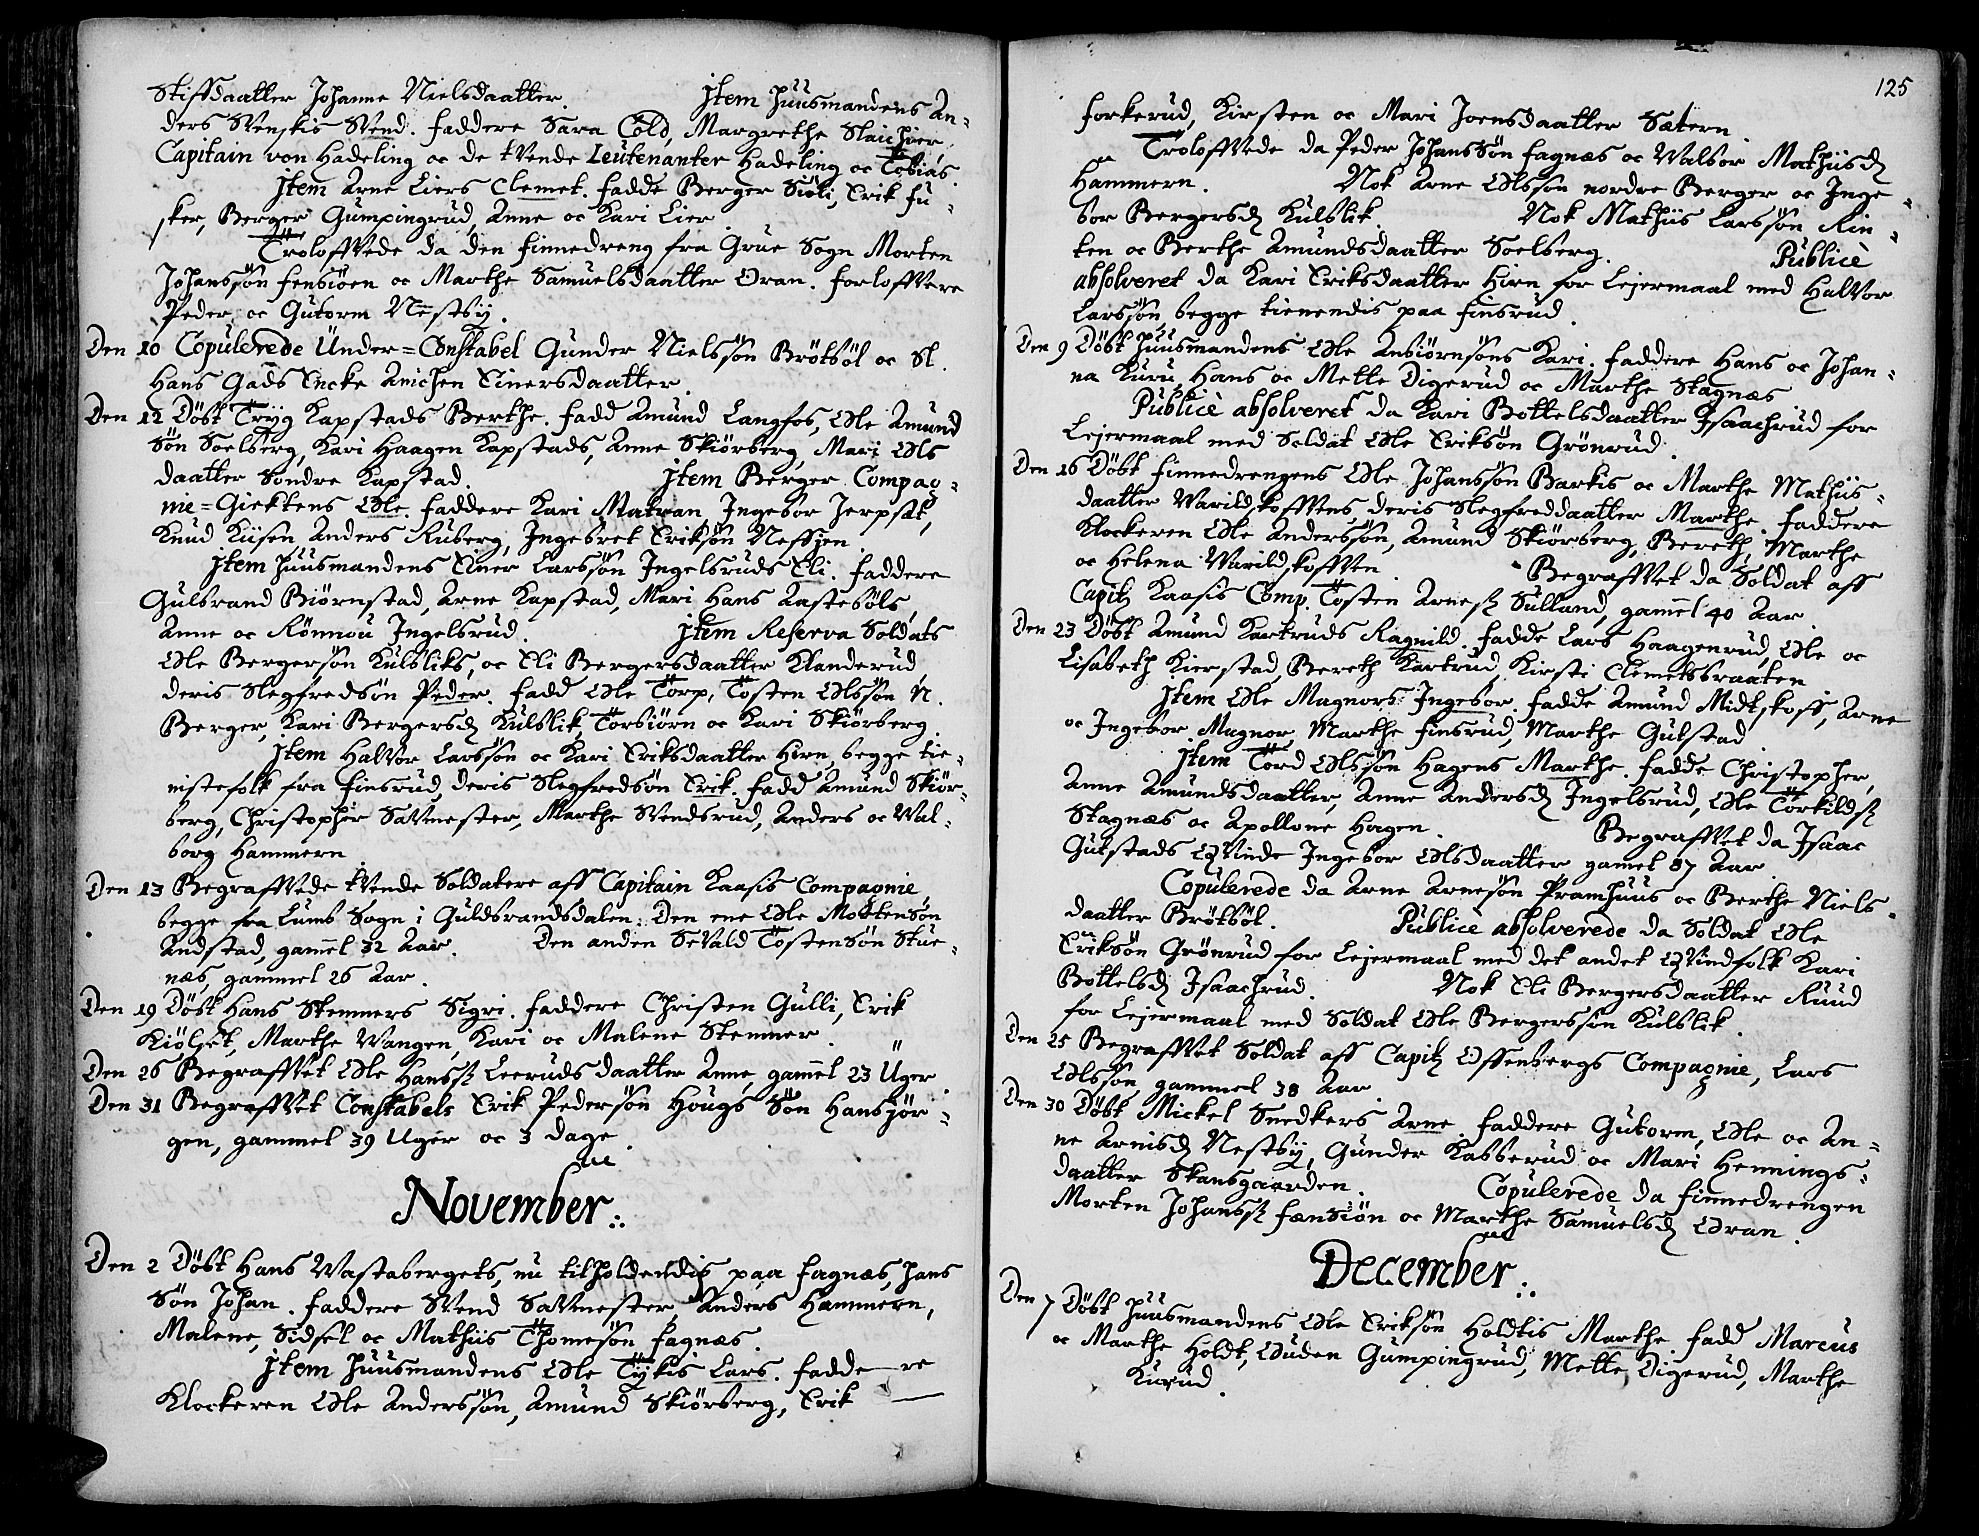 Stiffdaatter Johanne Nielsdaatter. Item Huusmandens An-
ders Svenskis Svend. Faddere Sara Cold, Margrethe Slaichier,
Capitain von Hadeling oc de tvende Leutenanter Hadeling oc Tobias.
Item Arne Liers Clemet. Fadde Berger Siöli, Erik Fu-
sker, Berger Gumpingrud, Anne oc Kari Lier.
Troloffvede da den Finnedreng fra Grue Sogn Morten
Johansön Fensiöen oc Marthe Samuelsdaatter Oran. Forloffvere
Peder oc Gutorm Nestby.
Den 10 Copulerede Under=Constabel Gunder Nielssön Brötböl oc Sl.
Hans Gads Encke Anichen Einersdaatter.
Den 12 Döbt Tryg Kapstads Berthe. Fadd Amund Langfos, Ole Amund
Sön Soelberg, Kari Haagen Kapstads, Anne Skiörberg, Mari Ols
daatter Söndre Kapstad. Item Berger Compag-
nie=Giektens Ole. Faddere Kari Matran, Ingebor Jerpset,
Knud Kiisen Anders Ruberg, Ingebret Eriksön Nessjen.
Item Huusmandens Einer Larssön Ingelsruds Eli. Faddere
Gulbrand Biörnstad, Arne Kapstad, Mari Hans Aasteböls,
Anne oc Rönnou Ingelsrud. Item Reserva Soldats
Ole Bergersön Kulbliks, oc Eli Bergersdaatter Klanderud
deris Slegfredsön Peder. Fadd Ole Torp, Tosten Olssön N.
Berger, Kari Bergersd Kulblik, Torbiörn oc Kari Skiörberg.
Item Halvor Larssön oc Kari Eriksdaatter Hirn, begge tie-
nistefolk fra Finsrud, deris Slegfredsön Erik. Fadd Amund Skiör-
berg, Christopher Savmester, Marthe Svendsrud, Anders oc Val-
borg Hammern
Den 13 Begraffvede tvende Soldatere aff Capitain Kaasis Compagnie
begge fra Lums Sogn i Guldbrandsdalen. Den ene Ole Mortensön
Andstad, gamel 32 Aar. Den anden Sevald Tostensön Stue-
næs, gammel 26 Aar.
Den 19 Döbt Hans Stemners Sigri. Faddere Christen Gulli, Erik
Kiölset, Marthe Vangen, Kari oc Malene Stemner.
Den 26 Begraffvet Ole Hanss Leeruds daatter Anne, gamel 23 Uger.
Den 31 Begraffvet Constabels Erik Pedersön Hougs Sön Hans Jör-
gen, gammel 39 Uger oc 3 dage.
November.
Den 2 Döbt Hans Vastabergets, nu tilholdendis paa Fagnæs, Hans
Sön Johan. Faddere Svend Savmester Anders Hammern,
Malene, Sidsel oc Mathiis Thomesön Fagnæs.
Item Huusmandens Ole Tykis Lars. Faddere
Klockeren Ole Anderssön, Amund Skiörberg, Erik
125
Forkerud, Kirsten oc Mari Joensdaatter Sætern.
Troloffvede da Peder Johanssön Fagnæs oc Valbor Mathiisd
Hammern. Nok Arne Olssön nordre Berger oc Inge-
bor Bergersd Kulblik. Nok Mathiis Larssön Rin-
ten oc Berthe Amundsdaatter Soelberg. Publicè
absolveret da Kari Eriksdaatter Hirn for Lejermaal med Halvor
Larssön begge tienendis paa Finsrud.
Den 9 Döbt Huusmandens Ole Anbiörnsöns Kari. Faddere Hans oc Johan-
na Kuru, Hans oc Mette Digerud oc Marthe Stagnæs
Publicè absolveret da Kari Bottelsdaatter Isaachrud for
Lejermaal med Soldat Ole Eriksön Grönrud.
Den 16 Döbt Finnedrengens Ole Johanssön Barkis oc Marthe Mathiis-
daatter Varildskoffvens deris Slegfreddaatter Marthe. Faddere
Klockeren Ole Anderssön, Amund Skiörberg, Bereth, Marthe
oc Helena Varildskoffven. Begraffvet da Soldat aff
Capit Kaasis Comp. Tosten Arness Sulland, gamel 40 Aar.
Den 23 Döbt Amund Kartruds Ragnild. Fadde Lars Haagenrud, Ole oc
Lisabeth Kierstad, Bereth Kartrud, Kirsti Clemetsbraaten
Item Ole Magnors Ingebor. Fadde Amund Midtskoff, Arne
oc Ingebor Magnor, Marthe Finsrud, Marthe Gulstad.
Item Tord Olssön Hagens Marthe. Fadde Christopher,
Anne Amundsdaatter, Anne Andersd Ingelsrud, Ole Torkilds
Stagnæs oc Apollone Hagen. Begraffvet da Isaac
Gulstads Qvinde Ingebor Olsdaatter gamel 87 Aar.
Copulerede da Arne Arnesön Pramhuus oc Berthe Niels-
daatter Brötböl. Publicè absolverede da Soldat Ole
Eriksön Grönrud for Lejermaal med det andet Qvindfolk Kari
Bottelsd Isaachrud. Nok Eli Bergersdaatter Ruud
for Lejermaal med Soldat Ole Bergerssön Kulblik.
Den 25 Begraffvet Soldat aff Capit Offenbergs Compagnie, Lars
Olssön, gammel 38 Aar.
Den 30 Döbt Mickel Snedkers Arne. Faddere Gutorm, Ole oc An-
ne Arnisd Nestby, Gunder Kabberud oc Mari Hennings-
daatter Skansgaarden. Copulerede da Finnedrengen
Morten Johanss Fænsiön oc Marthe Samuelsd Oran.
December.
Den 7 Döbt Huusmandens Ole Eriksön Holdtis Marthe. Fadd Marcus
oc Marthe Holdt, Ouden Gumpingrud, Mette Digerud, Marthe
Kurud.